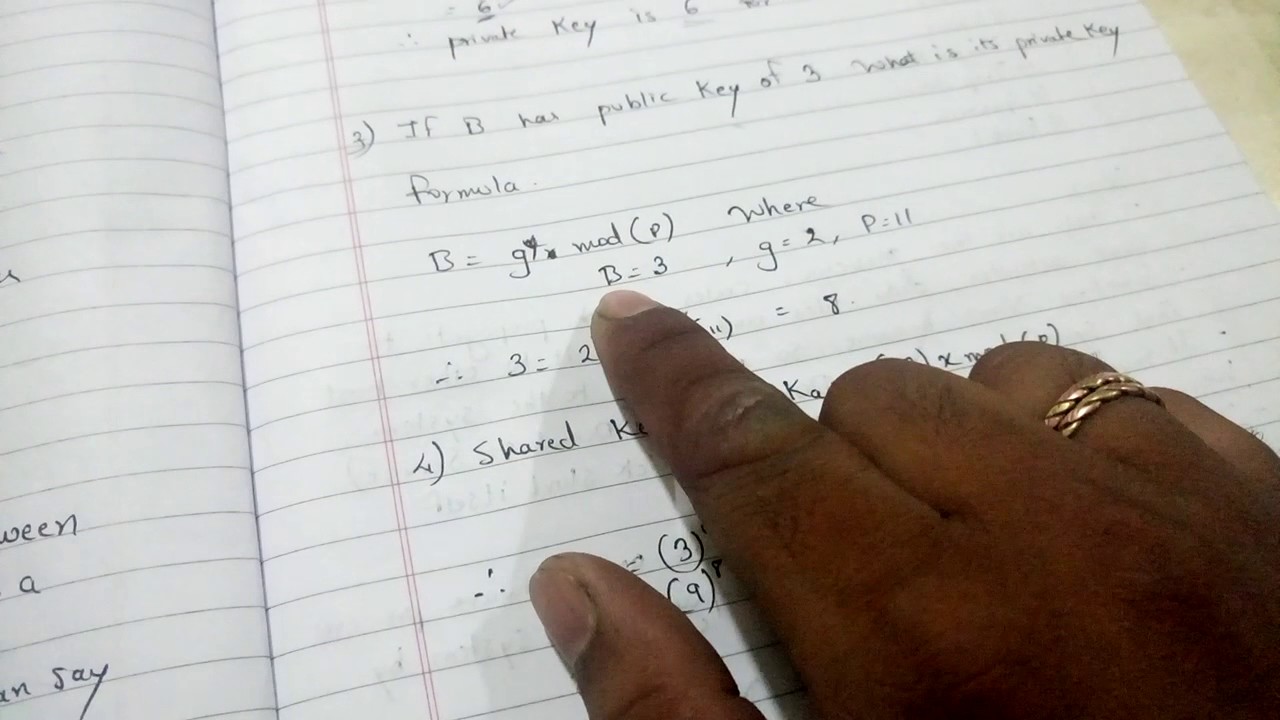 = 6
∴ private Key is 6
3) If B has public Key of 3 What is its private Key
formula.
B = g x mod (P) Where
B = 3 , g = 2, P = 11
∴ 3 = 2 11) = 8.
4) Shared Ka x mod (P)
∴ = (3)
(9)8
ween
a
say